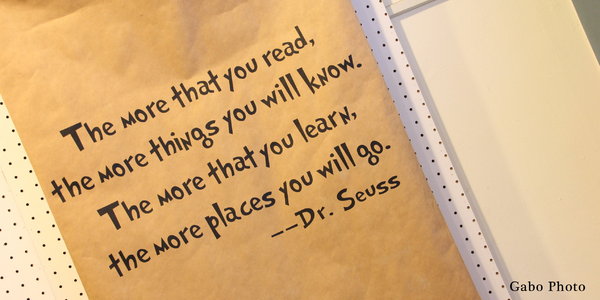 The more that you read,
the more things you will know.
The more that you learn,
the more places you will go.
--Dr. Seuss
Gabo Photo